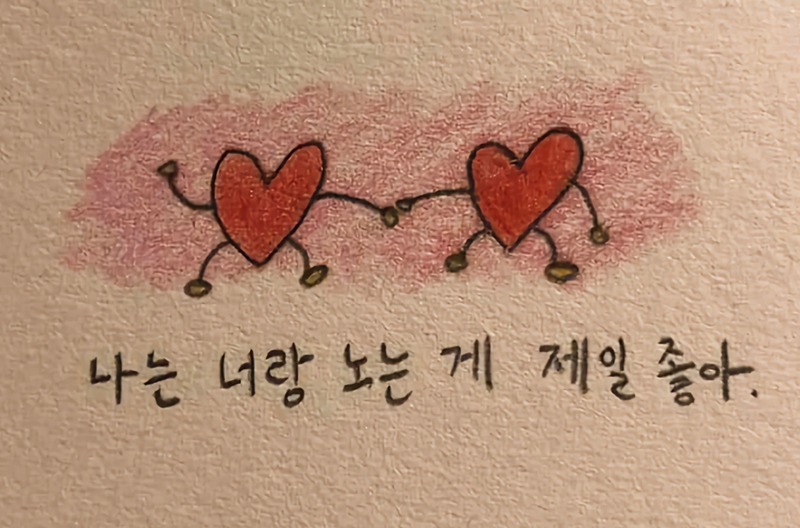 나는 너랑 노는 게 제일 좋아.